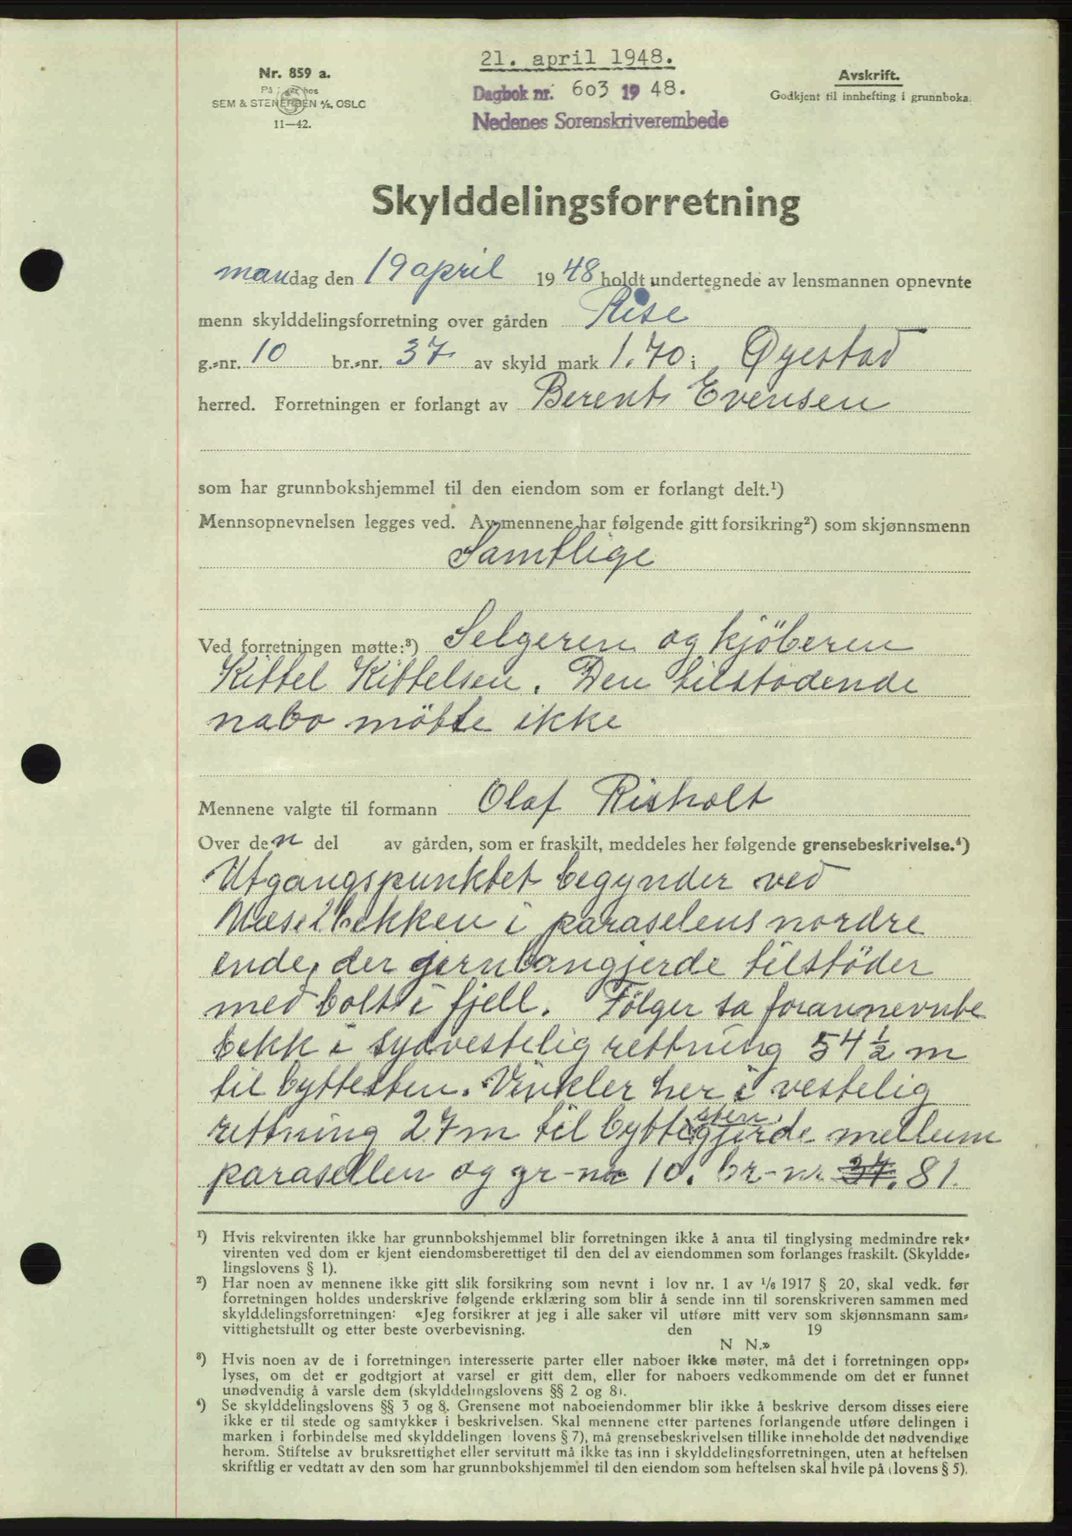 21. april 1948.
Nr. 859 a.
Avskrift.
SEM & STENERSEN A/S, OSLO
Dagbok nr. 603 1948.
Godkjent til innhefting i grunnboka.
11—42.
Nedenes Sorenskriverembede
Skylddelingsforretning
mandag den 19 april 1948 holdt undertegnede av lensmannen opnevnte
menn skylddelingsforretning over gården Rise
g.-nr. 10 br.-nr. 37 av skyld mark 1.70 i Øyestad
herred. Forretningen er forlangt av Berent Evensen
som har grunnbokshjemmel til den eiendom som er forlangt delt.¹)
Mennsopnevnelsen legges ved. Av mennene har følgende gitt forsikring²) som skjønnsmenn
Samtlige
Ved forretningen møtte:³) Selgeren og kjöberen
Kittel Kittelsen. Den tilstödende
nabo mötte ikke
Mennene valgte til formann Olaf Risholt
Over den del av gården, som er fraskilt, meddeles her følgende grensebeskrivelse.⁴)
Utgangspunktet begynder ved
bekken i paraselens nordre
ende, der jernbangjerde tilstöder
med bolt i fjell. Fölger sa forannevnte
bekk i sydvestelig rettning 54 ½ m
til byttesten. Vinkler her i vestelig
sten
rettning 27 m til byttegjerde mellem
parasellen og gr-nr 10. br-nr 37. 81.
¹) Hvis rekvirenten ikke har grunnbokshjemmel blir forretningen ikke å anta til tinglysing medmindre rek-
virenten ved dom er kjent eiendomsberettiget til den del av eiendommen som forlanges fraskilt. (Skyldde-
lingslovens § 1).
²) Har noen av mennene ikke gitt slik forsikring som nevnt i lov nr. 1 av 1/6 1917 § 20, skal vedk. før
forretningen holdes underskrive følgende erklæring som blir å sende inn til sorenskriveren sammen med
skylddelingsforretningen: «Jeg forsikrer at jeg i alle saker vil utføre mitt verv som skjønnsmann sam-
vittighetsfullt og etter beste overbevisning. den 19
N N.»
³) Hvis noen av de i forretningen interesserte parter eller naboer ikke møter, må det i forretningen opp-
lyses, om det er godtgjort at varsel er gitt dem, eller for naboers vedkommende om det er funnet
unødvendig å varsle dem (skylddelingslovens §§ 2 og 8).
⁴) Se skylddelingslovens §§ 3 og 8. Grensene mot naboeiendommer blir ikke å beskrive dersom disses eiere
ikke er til stede og samtykker i beskrivelsen. Skal mennene etter partenes forlangende utføre delingen i
marken i forbindelse med skylddelingen (lovens § 7), må grensebeskrivelsen tillike inneholde det nødvendige
herom. Stiftelse av bruksrettighet eller servitutt må ikke tas inn i skylddelingsforretningen, uten at heftelsen
skriftlig er vedtatt av den som har grunnbokshjemmel til den eiendom som heftelsen skal hvile på (lovens § 5).